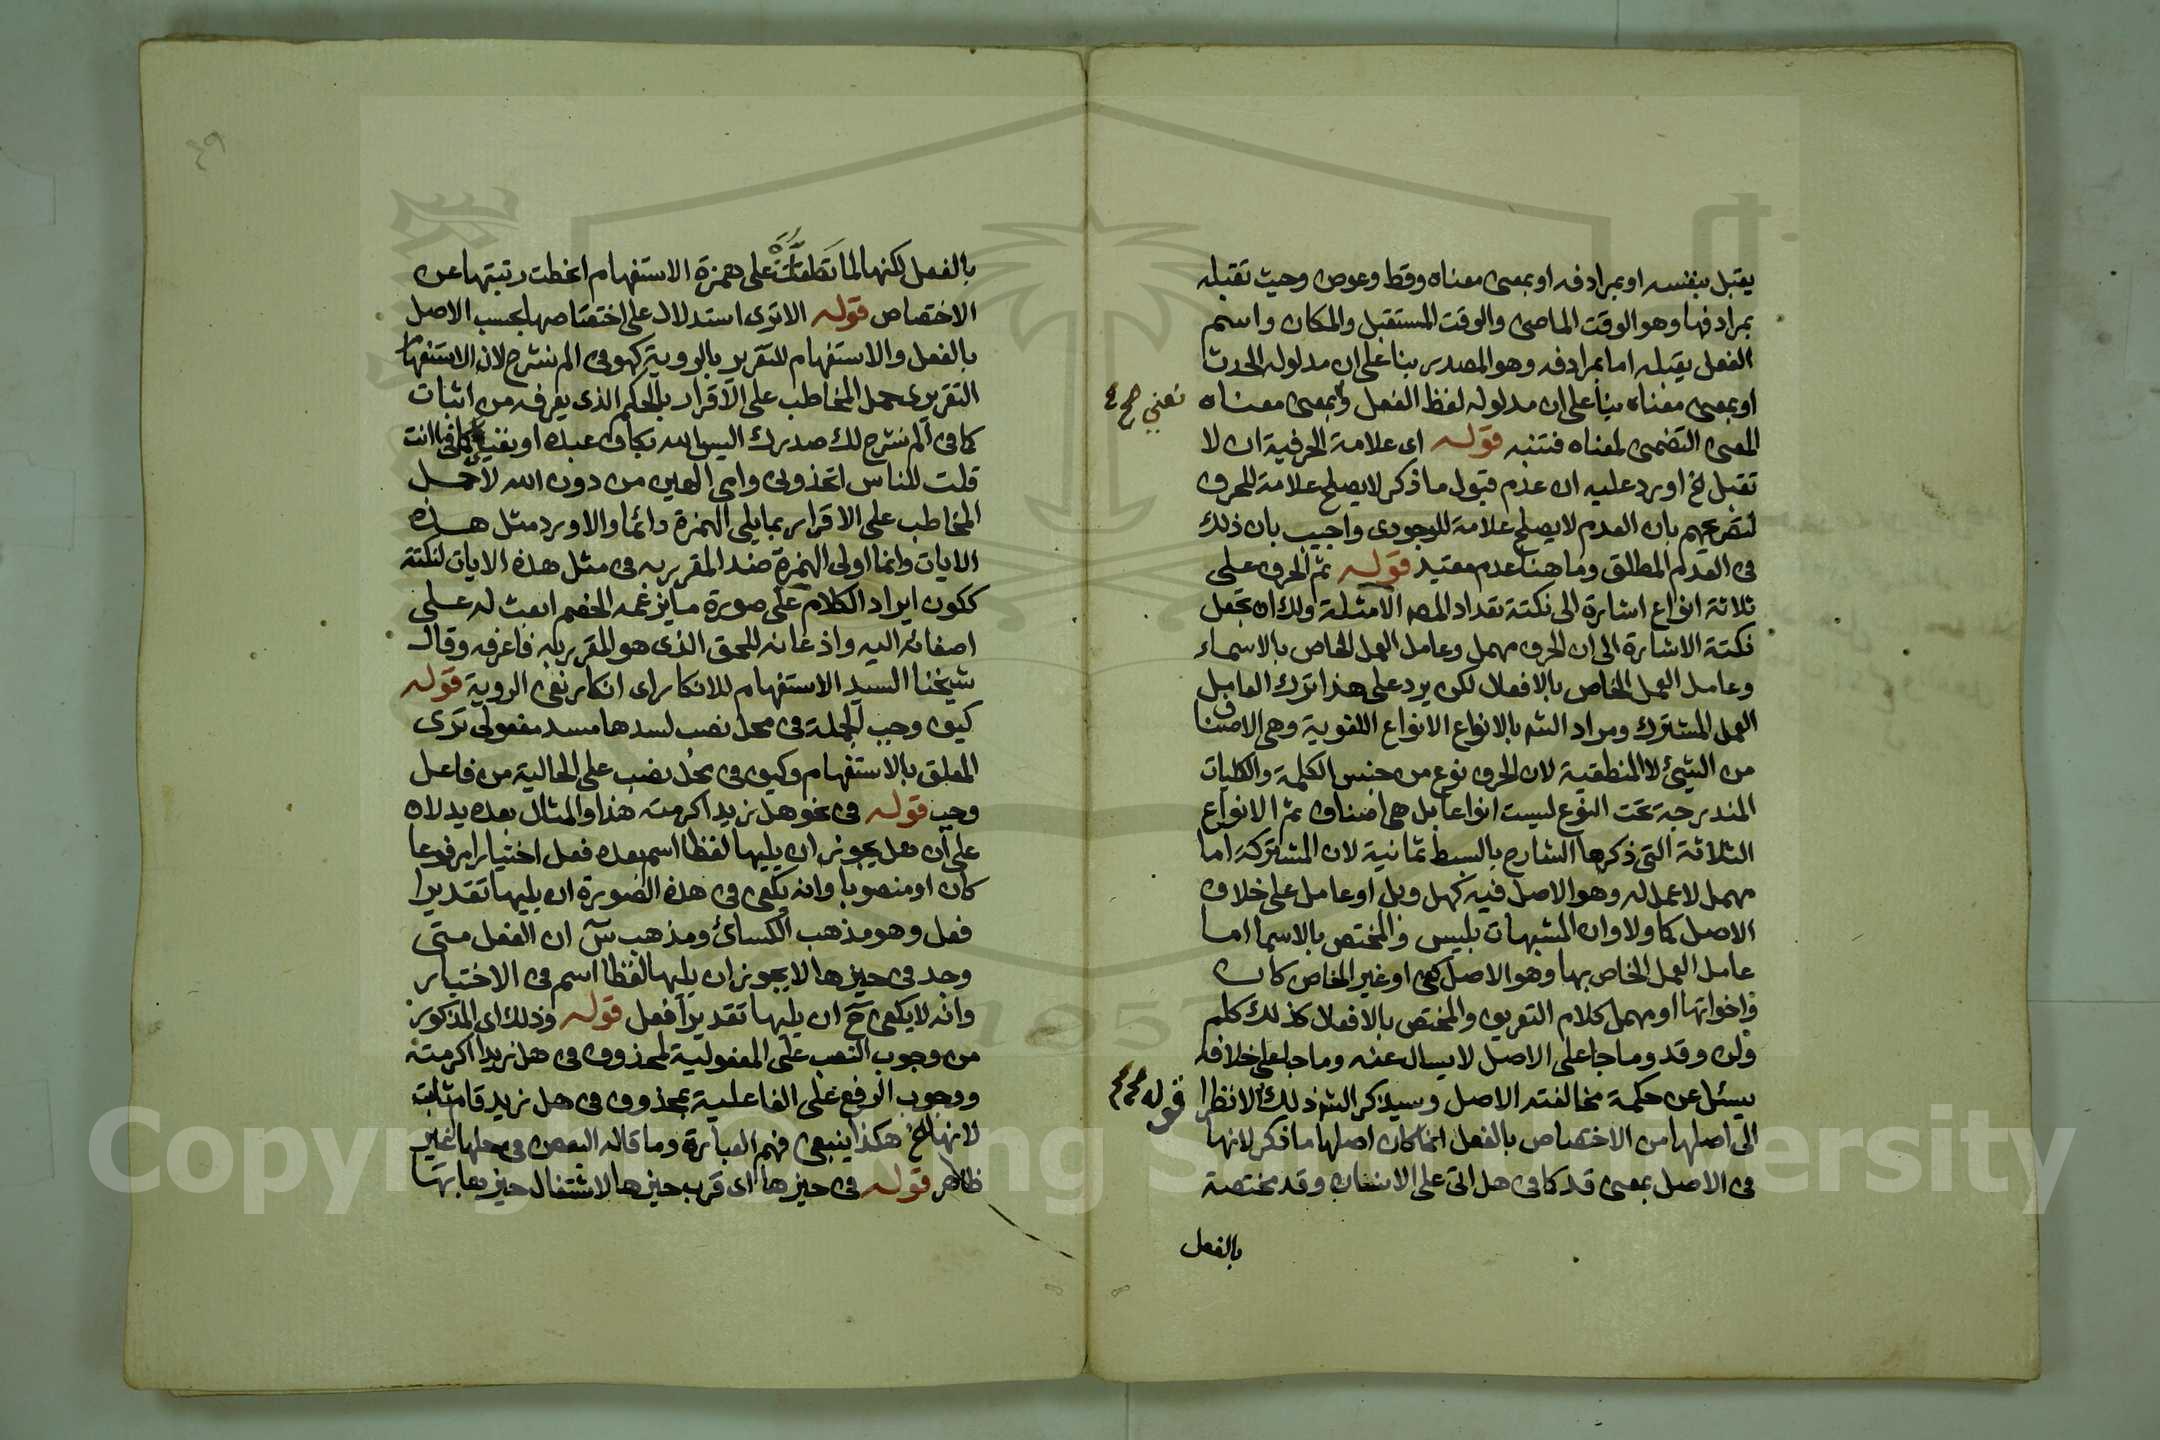 يقبل بنفسه او بمرادفه او بمعنى معناه وقط وعوض وحيث تقبله
بمرادفها وهو الوقت الماضى والوقت المستقبل والمكان واسم
الفعل يقبله اما بمرادفه وهو المصدر بنا على ان مدلوله الحدث
او بمعنى معناه بنا على ان مدلوله لفظ الفعل وبمعنى معناه
نعني صح
المعنى التضمنى لمعناه فتنبه قوله اى علامة الحرفية ان لا
تقبل الخ اورد عليه ان عدم قبول ما ذكر لا يصلح علامة للحرف
لتصريحهم بان العدم لا يصلح علامة للوجودى واجيب بان ذلك
فى العدم المطلق وما هنا عدم مقيد قوله ثم الحرف على
ثلاثة انواع اشارة الى نكتة تعداد المص الامثلة ولك ان تجعل
نكتة الاشارة الى ان الحرف مهمل وعامل العمل الخاص بالاسماء
وعامل العمل الخاص بالافعال لكن يرد على هذا ترك العامل
العمل المشترك ومراد الش بالانواع الانواع اللغوية وهى الاصناف
من الشيئ لا المنطقية لان الحرف نوع من جنس الكلمة والكليات
المندرجة تحت النوع ليست انواعا بل هى اصناف ثم الانواع
الثلاثة التى ذكرها الشارح بالبسط ثمانية لان المشتركة اما
مهمل لا عمل له وهو الاصل فيه كهل وبل او عامل على خلاف
الاصل كما ولا وان المشبهات بليس والمختص بالاسما اما
عامل العمل الخاص بها وهو الاصل كفى او غير الخاص كان
واخواتها او مهمل كلام التعريف والمختص بالافعال كذلك كلم
ولن وقد وما جا على الاصل لا يسال عنه وما جا على خلافه
يسئل عن حكمة مخالفته الاصل وسيذكر الش ذلك الا نظرا
قوله
الى اصلها من الاختصاص بالفعل انما كان اصلها ما ذكر لانها
فى الاصل بمعنى قد كما فى هل اتى على الانسان وقد مختصة
بالفعل
بالفعل لكنها لما على همزة الاستفهام انحطت رتبتها عن
الاختصاص قوله الا ترى استدلال على اختصاصها بحسب الاصل
بالفعل والاستفهام للتقرير بالروية كهو فى الم نشرح لان الاستفهام
التقريرى حمل المخاطب على الاقرار بالحكم الذى يعرفه من اثبات
كما فى الم نشرح لك صدرك اليس الله بكاف عبده او نفى كما فى اانت
قلت للناس اتخذونى وامى الهين من دون الله لا حمل
المخاطب على الاقرار بما يلى الهمزة دائما والا ورد مثل هذه
الايات وانما اولى الهمزة ضد المقرر به فى مثل هذه الايات لنكتة
ككون ايراد الكلام على صورة ما يزعمه الخصم ابعث له على
اصغائه اليه واذعانه للحق الذى هو المقرر به فاعرفه وقال
شيخنا السيد الاستفهام للانكار اى انكار نفى الروية قوله
كيف وجب الجملة فى محل نصب لسدها مسد مفعولى ترى
المعلق بالاستفهام وكيف فى محل نصب على الحالية من فاعل
وجب قوله فى نحو هل زيدا اكرمته هذا والمثال بعده يدلان
على ان هل يجوز ان يليها لفظا اسم بعده فعل اختيارا مرفوعا
كان او منصوبا وانه يكفى فى هذه الصورة ان يليها تقديرا
فعل وهو مذهب الكسائى ومذهب س ان الفعل متى
وجد فى حيزها لا يجوز ان يليها لفظا اسم فى الاختيار
وانه لا يكفى ح ان يليها تقديرا فعل قوله وذلك اى المذكور
من وجوب النصب على المفعولية لمحذوف فى هل زيدا اكرمته
ووجوب الرفع على الفاعلية بمحذوف فى هل زيد قام ثابت
لانها الخ هكذا ينبغى فهم العبارة وما قاله البعض فى حلها غير
ظاهر قوله فى حيزها اى قرب حيزها لاشتغال حيزها بها